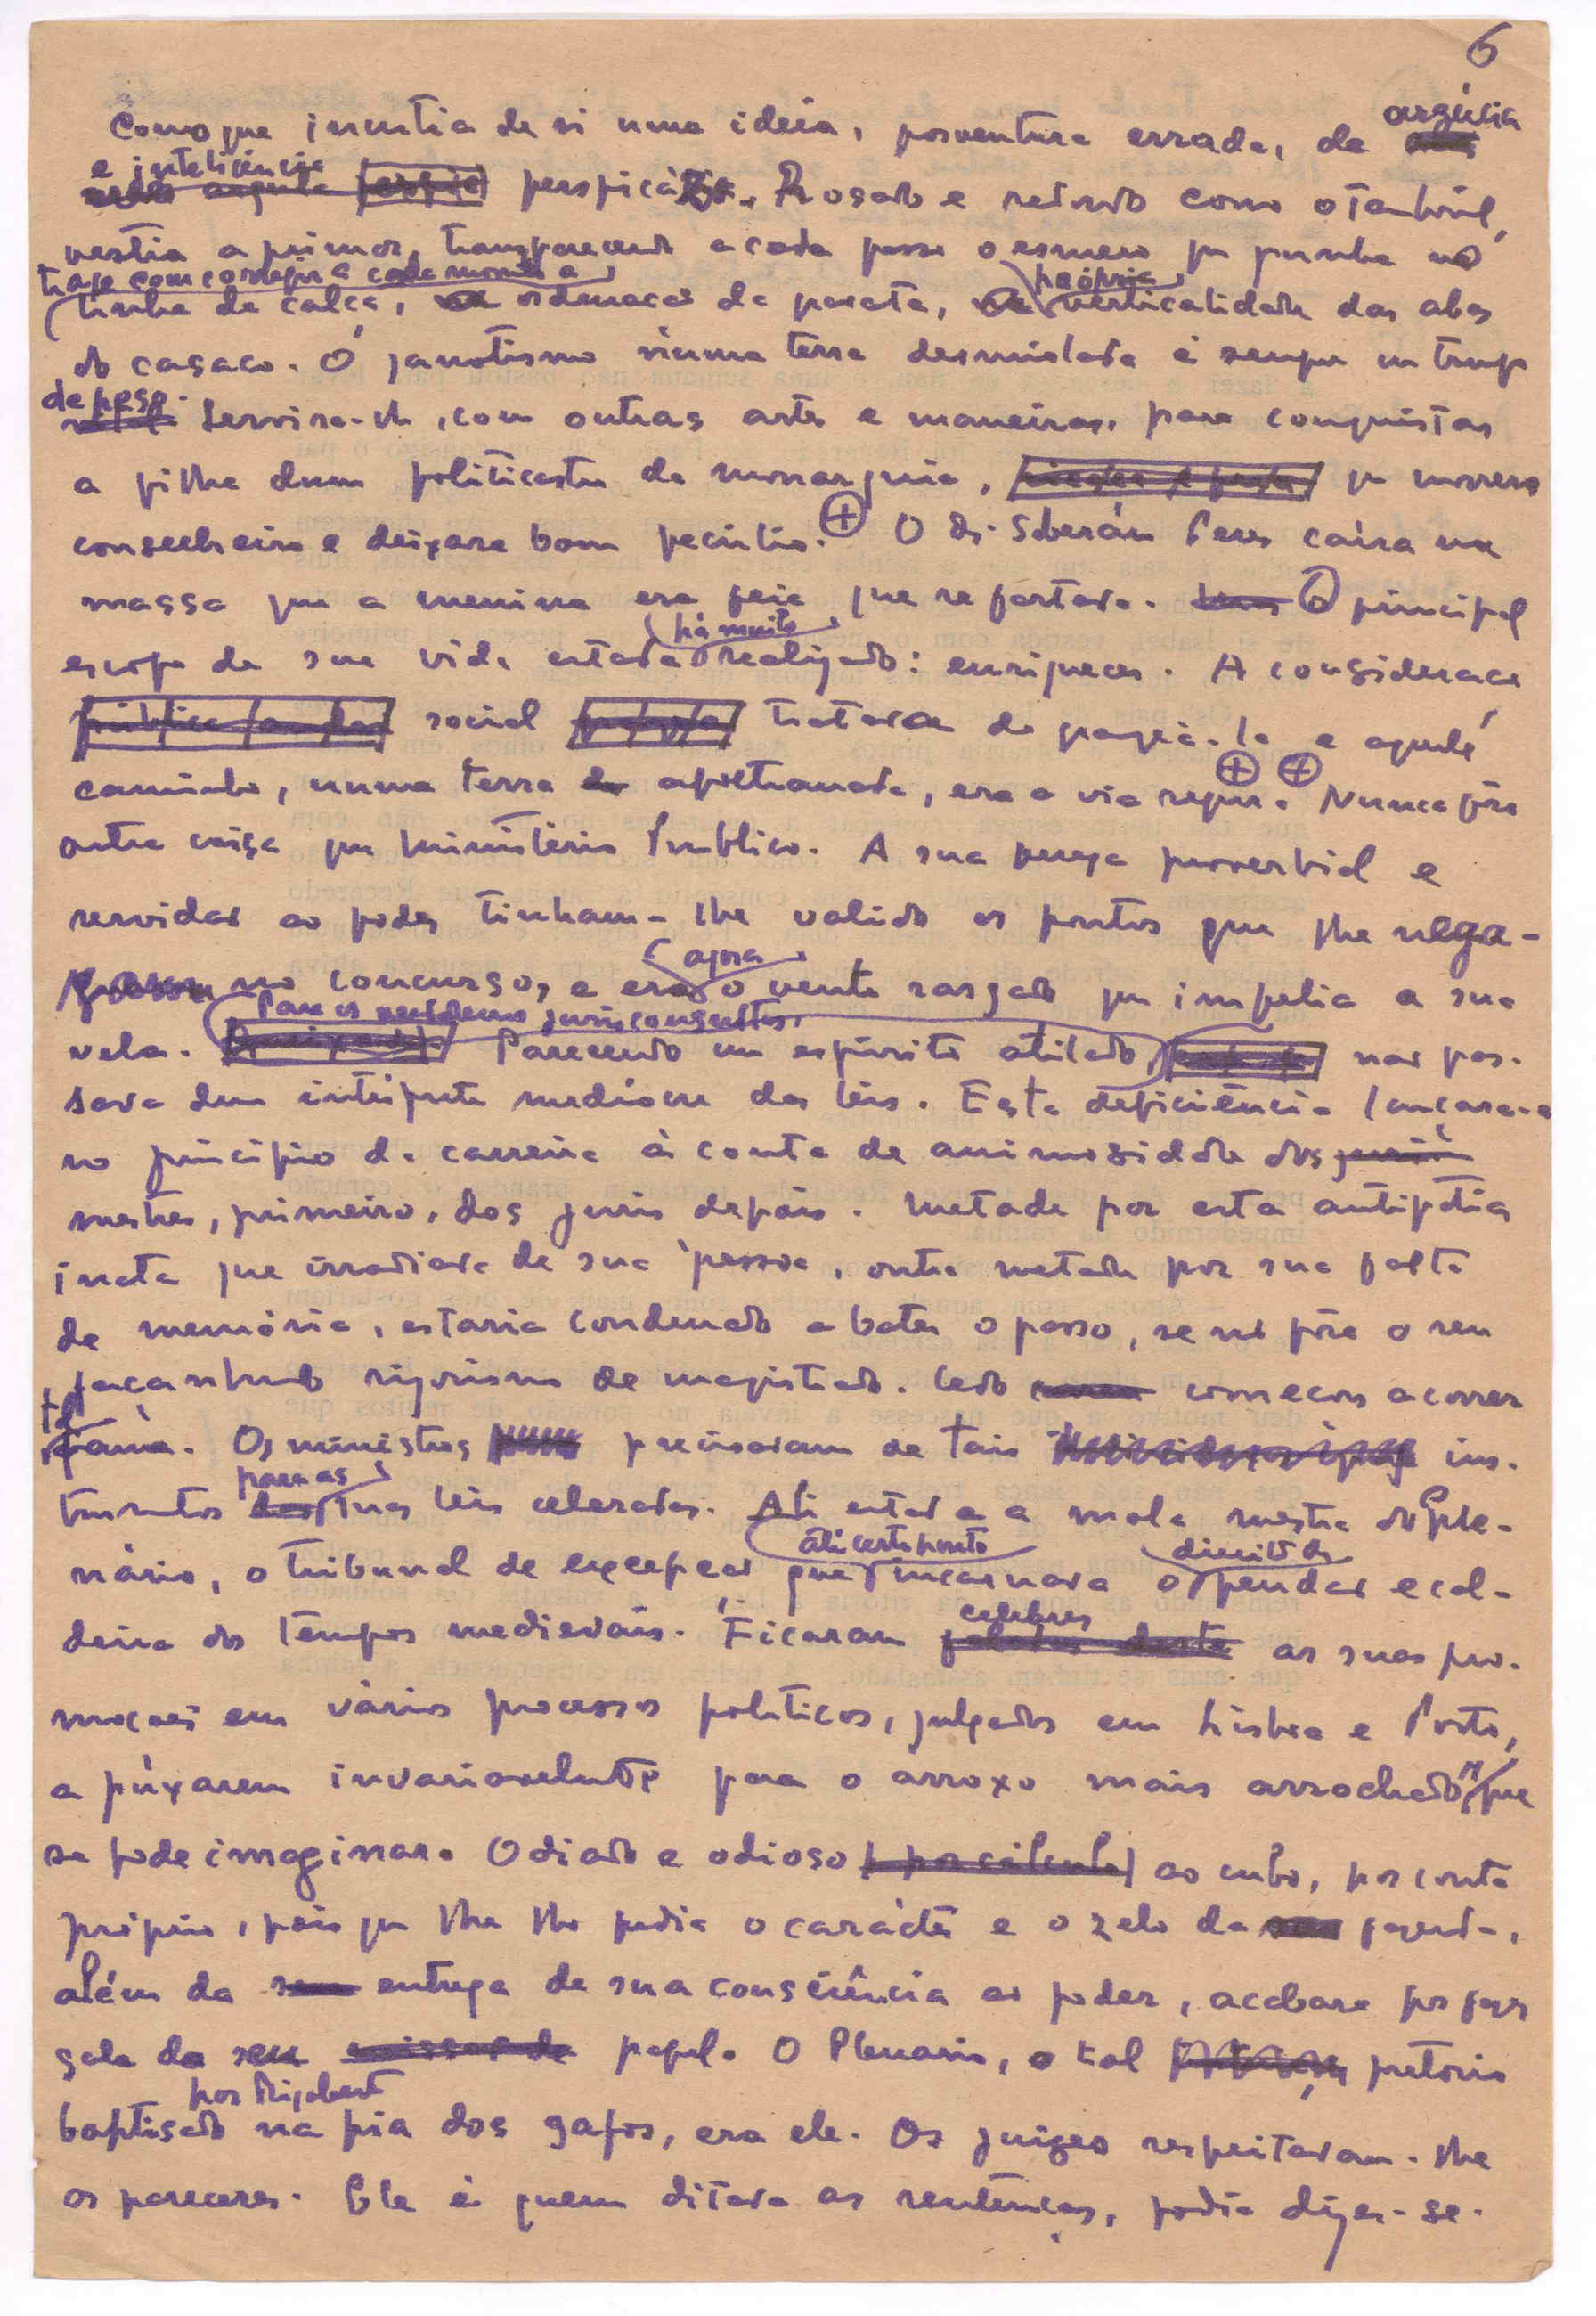 6
Como que incutia de si uma ideia, porventura errada, de argúcia
e inteligência perspicaz. Rosado e redondo como o tamboril,
vestia a primor, transparecendo a cada passo o esmero que punha no
traje com compostura a cada momento a
linha da calça, ordenação da gravata, própria verticalidade das abas
do casaco. O janotismo numa terra desmiolada é sempre um trunfo
de peso. Servira-lh, com outras artes e maneiras, para conquistar
a filha dum politicastro da monarquia, que morrera
conselheiro e deixara bom pecúlio. ⊕ O dr. Soberán Peres caíra na
massa que a menina era feia que se fartava. O principal
escopo da sua vida estava há muito realizado: enriquecer. A consideração
social tratava de grangeá-la e aquele
caminho, numa terra apoltronada, era a via segura. ⊕ ⊕ Nunca fôra
outra coisa que Ministério Público. A sua proverbial e
servidão ao poder tinham-lhe valido os pontos que lhe nega-
no concurso, e era agora o vento rasgado que impelia a sua
vela. Para os jurisconsultos, Parecendo um espírito atilado, não pas-
sava dum intérprete medíocre das leis. Esta deficiência lançara-a
no princípio da carreira à conta de animosidade dos
mestres, primeiro, dos juris depois. Metade por esta antipatia
inata que irradiava de sua pessoa, outra metade por sua falta
de memória, estaria condenado a bater o passo, se não fôra o seu
façanhudo rigorismo de magistrado. Cedo começou a correr
tal fama. Os ministros precisavam de tais ins-
trumentos para as suas leis celeradas. Ali estava a mola mestra do Ple-
nário, o tribunal de excepção que até certo ponto incarnava o direito de pendão e cal-
deira dos tempos medievais. Ficaram celebres as suas pro-
moções em vários processos políticos, julgados em Lisboa e Porto,
a puxarem invariavelmente para o arroxo mais arrochado que
se pode imaginar. Odiado e odioso ao cubo, por conta
própria, pois que lhe lho pedia o carácter e o zelo da fazenda,
além da entrega de sua consciência ao poder, acabara por fazer
gala do seu papel. O Plenário, o tal pretório
baptisado por Rigoberto na pia dos gafos, era ele. Os juizes respeitavam-lhe
os pareceres. Ele é quem ditava as sentenças, podia dizer-se.